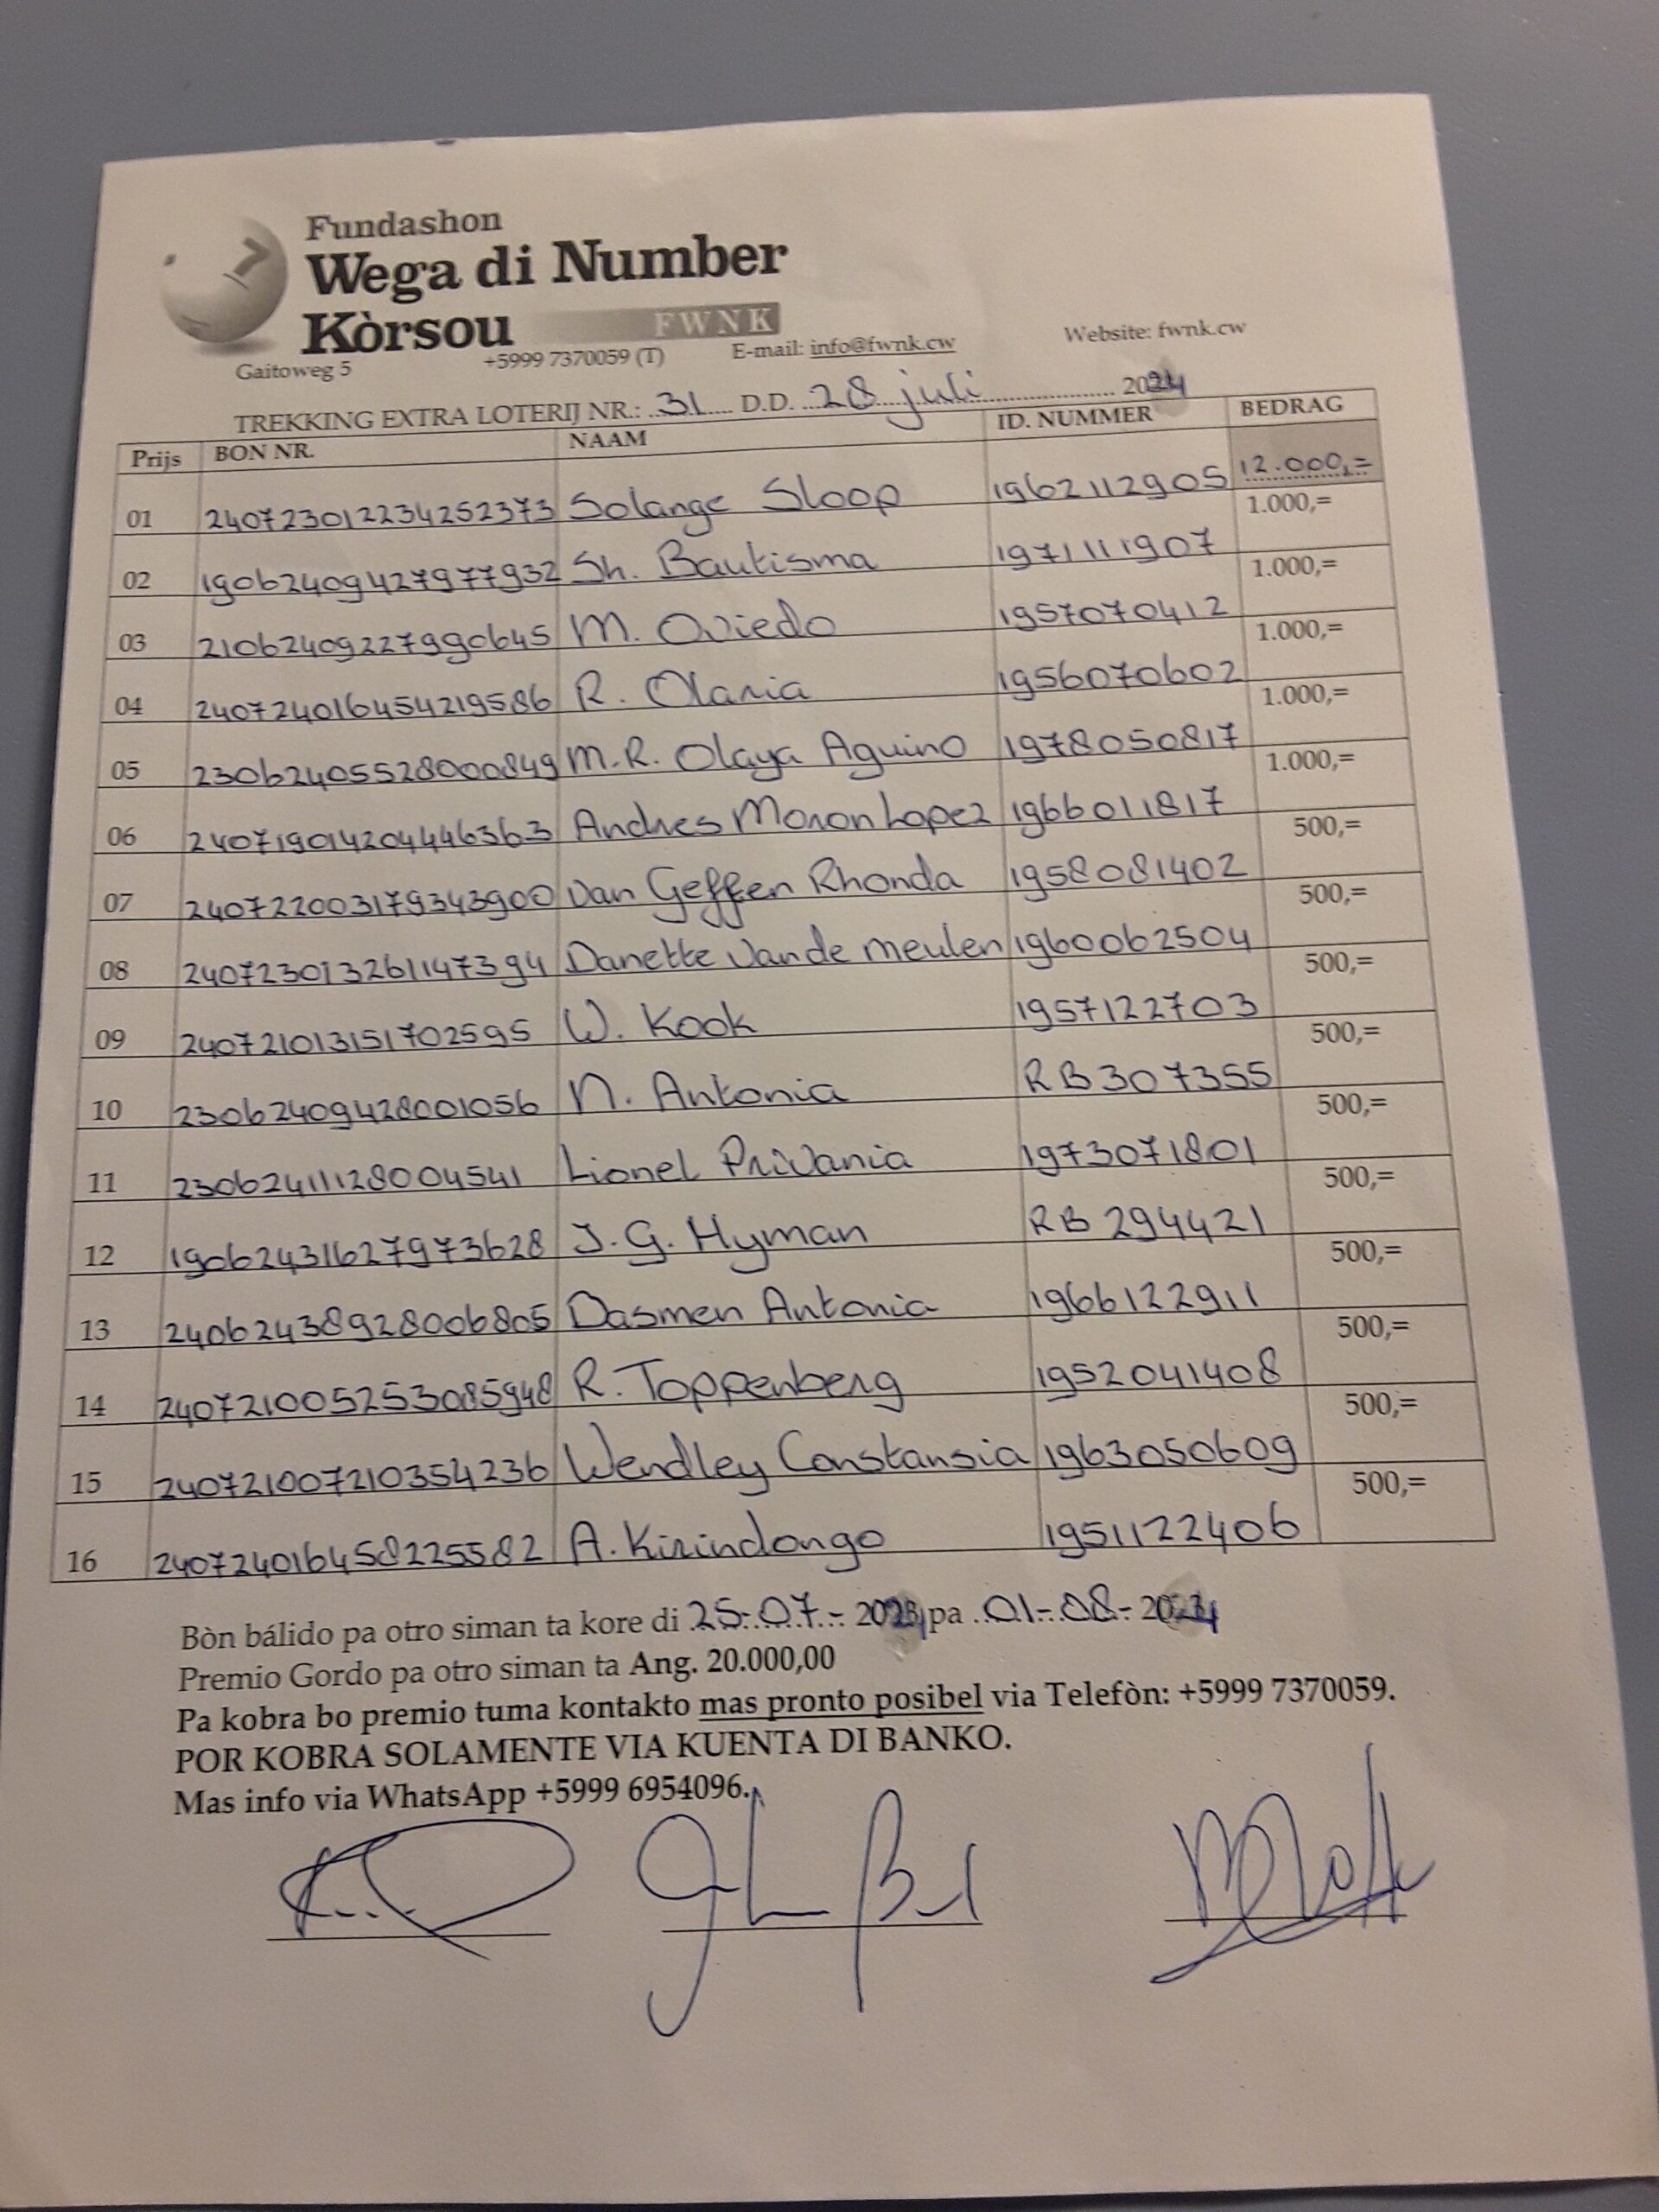 Fundashon
Wega di Number
Kòrsou FWNK
Gaitoweg 5 +5999 7370059 (T) E-mail: info@fwnk.cw Website: fwnk.cw
TREKKING EXTRA LOTERIJ NR.: 31 D.D. 28 juli 2024
Prijs BON NR. NAAM ID. NUMMER BEDRAG
01 240723012234252373 Solange Sloop 1962112905 12.000,=
02 19062409427977932 Sh. Bautisma 1971111907 1.000,=
03 21062409227990645 M. Oviedo 1957070412 1.000,=
04 2407240164542195 86 R. Olaria 1956070602 1.000,=
05 23062405528000849 M.R. Olaya Aguino 1978050817 1.000,=
06 2407190142044463 63 Andres Moron Lopez 1966011817 1.000,=
07 2407220031793439 00 van Geffen Rhonda 1958081402 500,=
08 240723013261147394 Danette van de meulen 1960062504 500,=
09 240721013151702595 W. Kook 1957122703 500,=
10 23062409428001056 N. Antonia RB307355 500,=
11 23062411128004541 Lionel Privania 1973071801 500,=
12 19062431627973628 J.G. Hyman RB 294421 500,=
13 24062438928006805 Dasmen Antonia 1966122911 500,=
14 240721005253085948 R. Toppenberg 1952041408 500,=
15 240721007210354236 Wendley Constansia 1963050609 500,=
16 240724016458225582 A. Kirindongo 1951122406 500,=
Bòn bálido pa otro siman ta kore di 25-07- 2024 pa 01-08- 2024
Premio Gordo pa otro siman ta Ang. 20.000,00
Pa kobra bo premio tuma kontakto mas pronto posibel via Telefòn: +5999 7370059.
POR KOBRA SOLAMENTE VIA KUENTA DI BANKO.
Mas info via WhatsApp +5999 6954096.